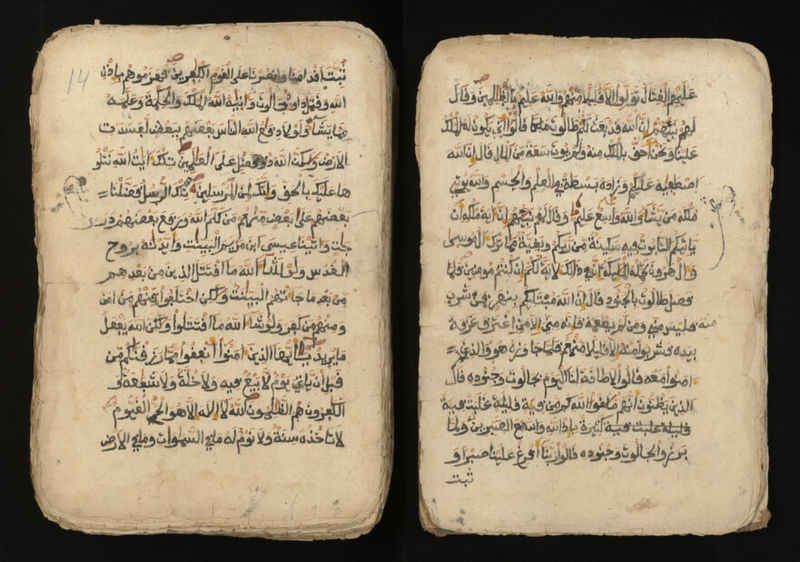 عليهم القتال تولوا الا قليلا منهم والله عليم بالظلمين وقال
لهم نبيهم ان الله قد بعث لكم طالوت ملكا قالوا انى يكون له الملك
علينا ونحن احق بالملك منه ولم يوت سعة من المال قال ان الله
اصطفيه عليكم وزاده بسطة في العلم والجسم والله يوتي
ملكه من يشا والله واسع عليم وقال لهم نبيهم ان اية ملكه ان
ياتيكم التابوت فيه سكينة من ربكم وبقية مما ترك ال موسى
وال هرون تحمله الملئكة ان في ذلك لاية لكم ان كنتم مومنين فلما
فصل طالوت بالجنود قال ان الله مبتليكم بنهر فمن شرب
منه فليس مني ومن لم يطعمه فانه مني الا من اغترف غرفة
بيده فشربوا منه الا قليلا منهم فلما جاوزه هو والذين
امنوا معه قالوا لا طاقة لنا اليوم بجالوت وجنوده قال
الذين يظنون انهم ملقوا الله كم من فية قليلة غلبت فية
قليلة غلبت فية كثيرة باذن الله والله مع الصبرين ولما
برزوا لجالوت وجنوده قالوا ربنا افرغ علينا صبرا و
ثبت
14
ثبت اقدامنا وانصرنا على القوم الكفرين فهزموهم باذن
الله وقتل داود جالوت واتيه الله الملك والحكمة وعلمه
مما يشا ولولا دفع الله الناس بعضهم ببعض لفسدت
الارض ولكن الله ذو فضل على العلمين تلك ايت الله نتلو
ها عليك بالحق وانك لمن المرسلين تلك الرسل فضلنا
بعضهم على بعض منهم من كلم الله ورفع بعضهم در
جت واتينا عيسى ابن مريم البينت وايدنه بروح
القدس ولو شا الله ما اقتتل الذين من بعدهم
من بعد ما جاتهم البينت ولكن اختلفوا فمنهم من امن
ومنهم من كفر ولو شا الله ما اقتتلوا ولكن الله يفعل
ما يريد يايها الذين امنوا انفقوا مما رزقنكم من
قبل ان ياتي يوم لا بيع فيه ولا خلة ولا شفعة
الكفرون هم الظلمون الله لا اله الا هو الحي القيوم
لا تاخذه سنة ولا نوم له ما في السموات وما في الارض